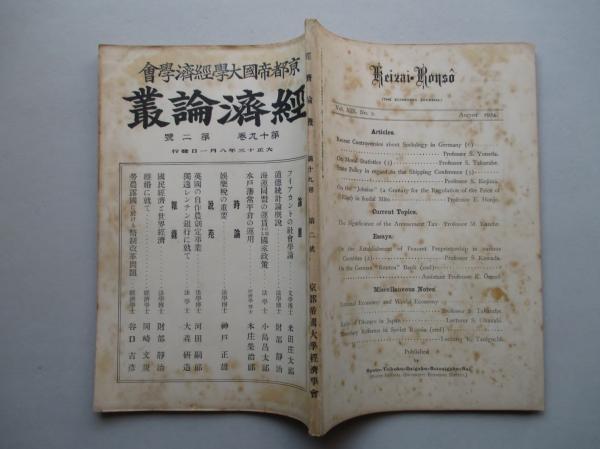 京都帝國大學經濟學會
經濟論叢
第十九卷 第二號
大正十三年八月一日發行
論叢
フイアカントの社會學論 文學博士 米田庄太郎
道德統計論概說 法學博士 財部靜治
海運同盟の運賃 國家政策 法學士 小島昌太郎
水戶藩常平倉の運用 經濟學士 本庄榮治郎
時論
娛樂稅の重要 法學博士 神戶正雄
說苑
英國の自作農創定事業 法學博士 河田嗣郎
獨逸レンテン銀行に就て 法學士 大森研造
雜錄
國民經濟と世界經濟 法學博士 財部靜治
就て 經濟學士 岡崎文規
勞農露國に於ける 改革問題 經濟學士 谷口吉彥
經濟論叢 第十九卷 第二號 京都帝國大學經濟學會
Keizai-Ronsō
(THE ECONOMIC JOURNAL)
Vol. XIX. No. 2. August 1924.
Articles.
Recent Controversies about Sociology in Germany
Professor S. Yoneda.
On Moral Statistics Professor S. Takarabe.
State Policy in regard to the Shipping Conference
Professor S. Kojima.
On the "Jōheisō" (a Granary for the Regulation of the Price of
Rice) in feudal Mito Professor E. Honjo.
Current Topics.
The Significance of the Amusement Tax Professor M. Kambe.
Essays.
On the Establishment of Peasant Proprietorship in various
Countries Professor S. Kawada.
On the German "Renten" Bank (end)
Assistant Professor K. Ōmori.
Miscellaneous Notes.
National Economy and World Economy
Professor S. Takarabe.
of Divorce in Japan Lecturer
Reforms in Soviet Russia (end)
Lecturer K. Taniguchi.
Published
by
Kyoto-Teikoku-Daigaku-Keizaigaku-Kai
(KYOTO IMPERIAL UNIVERSITY ECONOMIC SOCIETY)